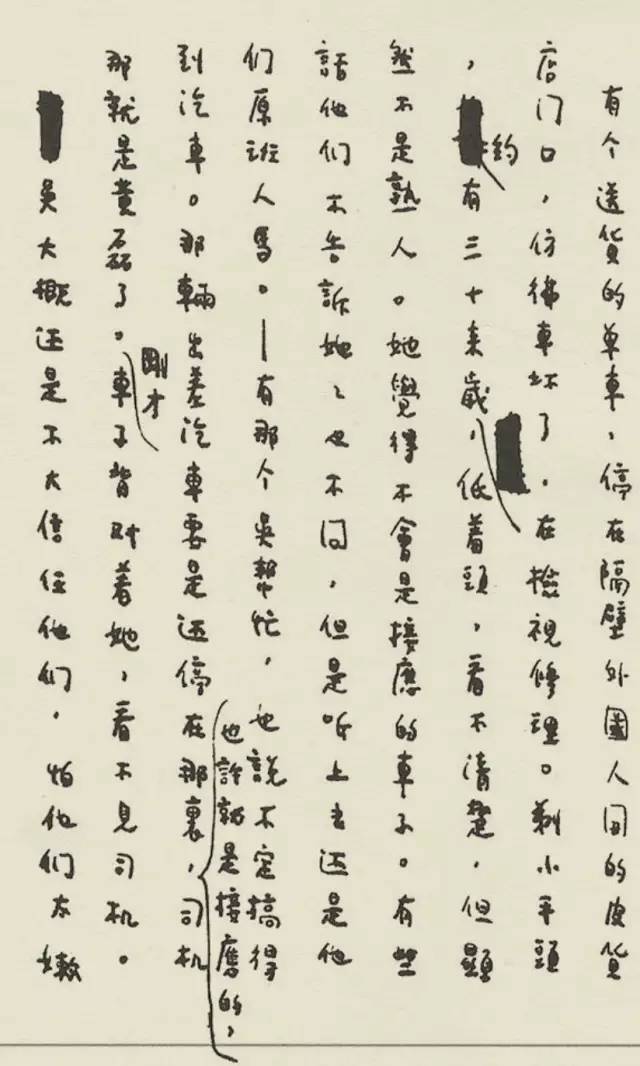 有个送貨的单車，停在隔壁外國人开的皮貨
店门口，仿彿車坏了，在檢視修理。剃小平頭
，約有三十來歲，低着頭，看不清楚，但顯
然不是熟人。她覺得不會是接應的車子。有些
話他们不告訴她她也不问，但是听上去还是他
们原班人馬。—有那个吳幫忙，也說不定搞得
到汽車。那輛出差汽車要是还停在那裏，也許就是接應的，司机
那就是黄磊了。剛才車子背对着她，看不見司机。
吳大概还是不大信任他们，怕他们太嫩